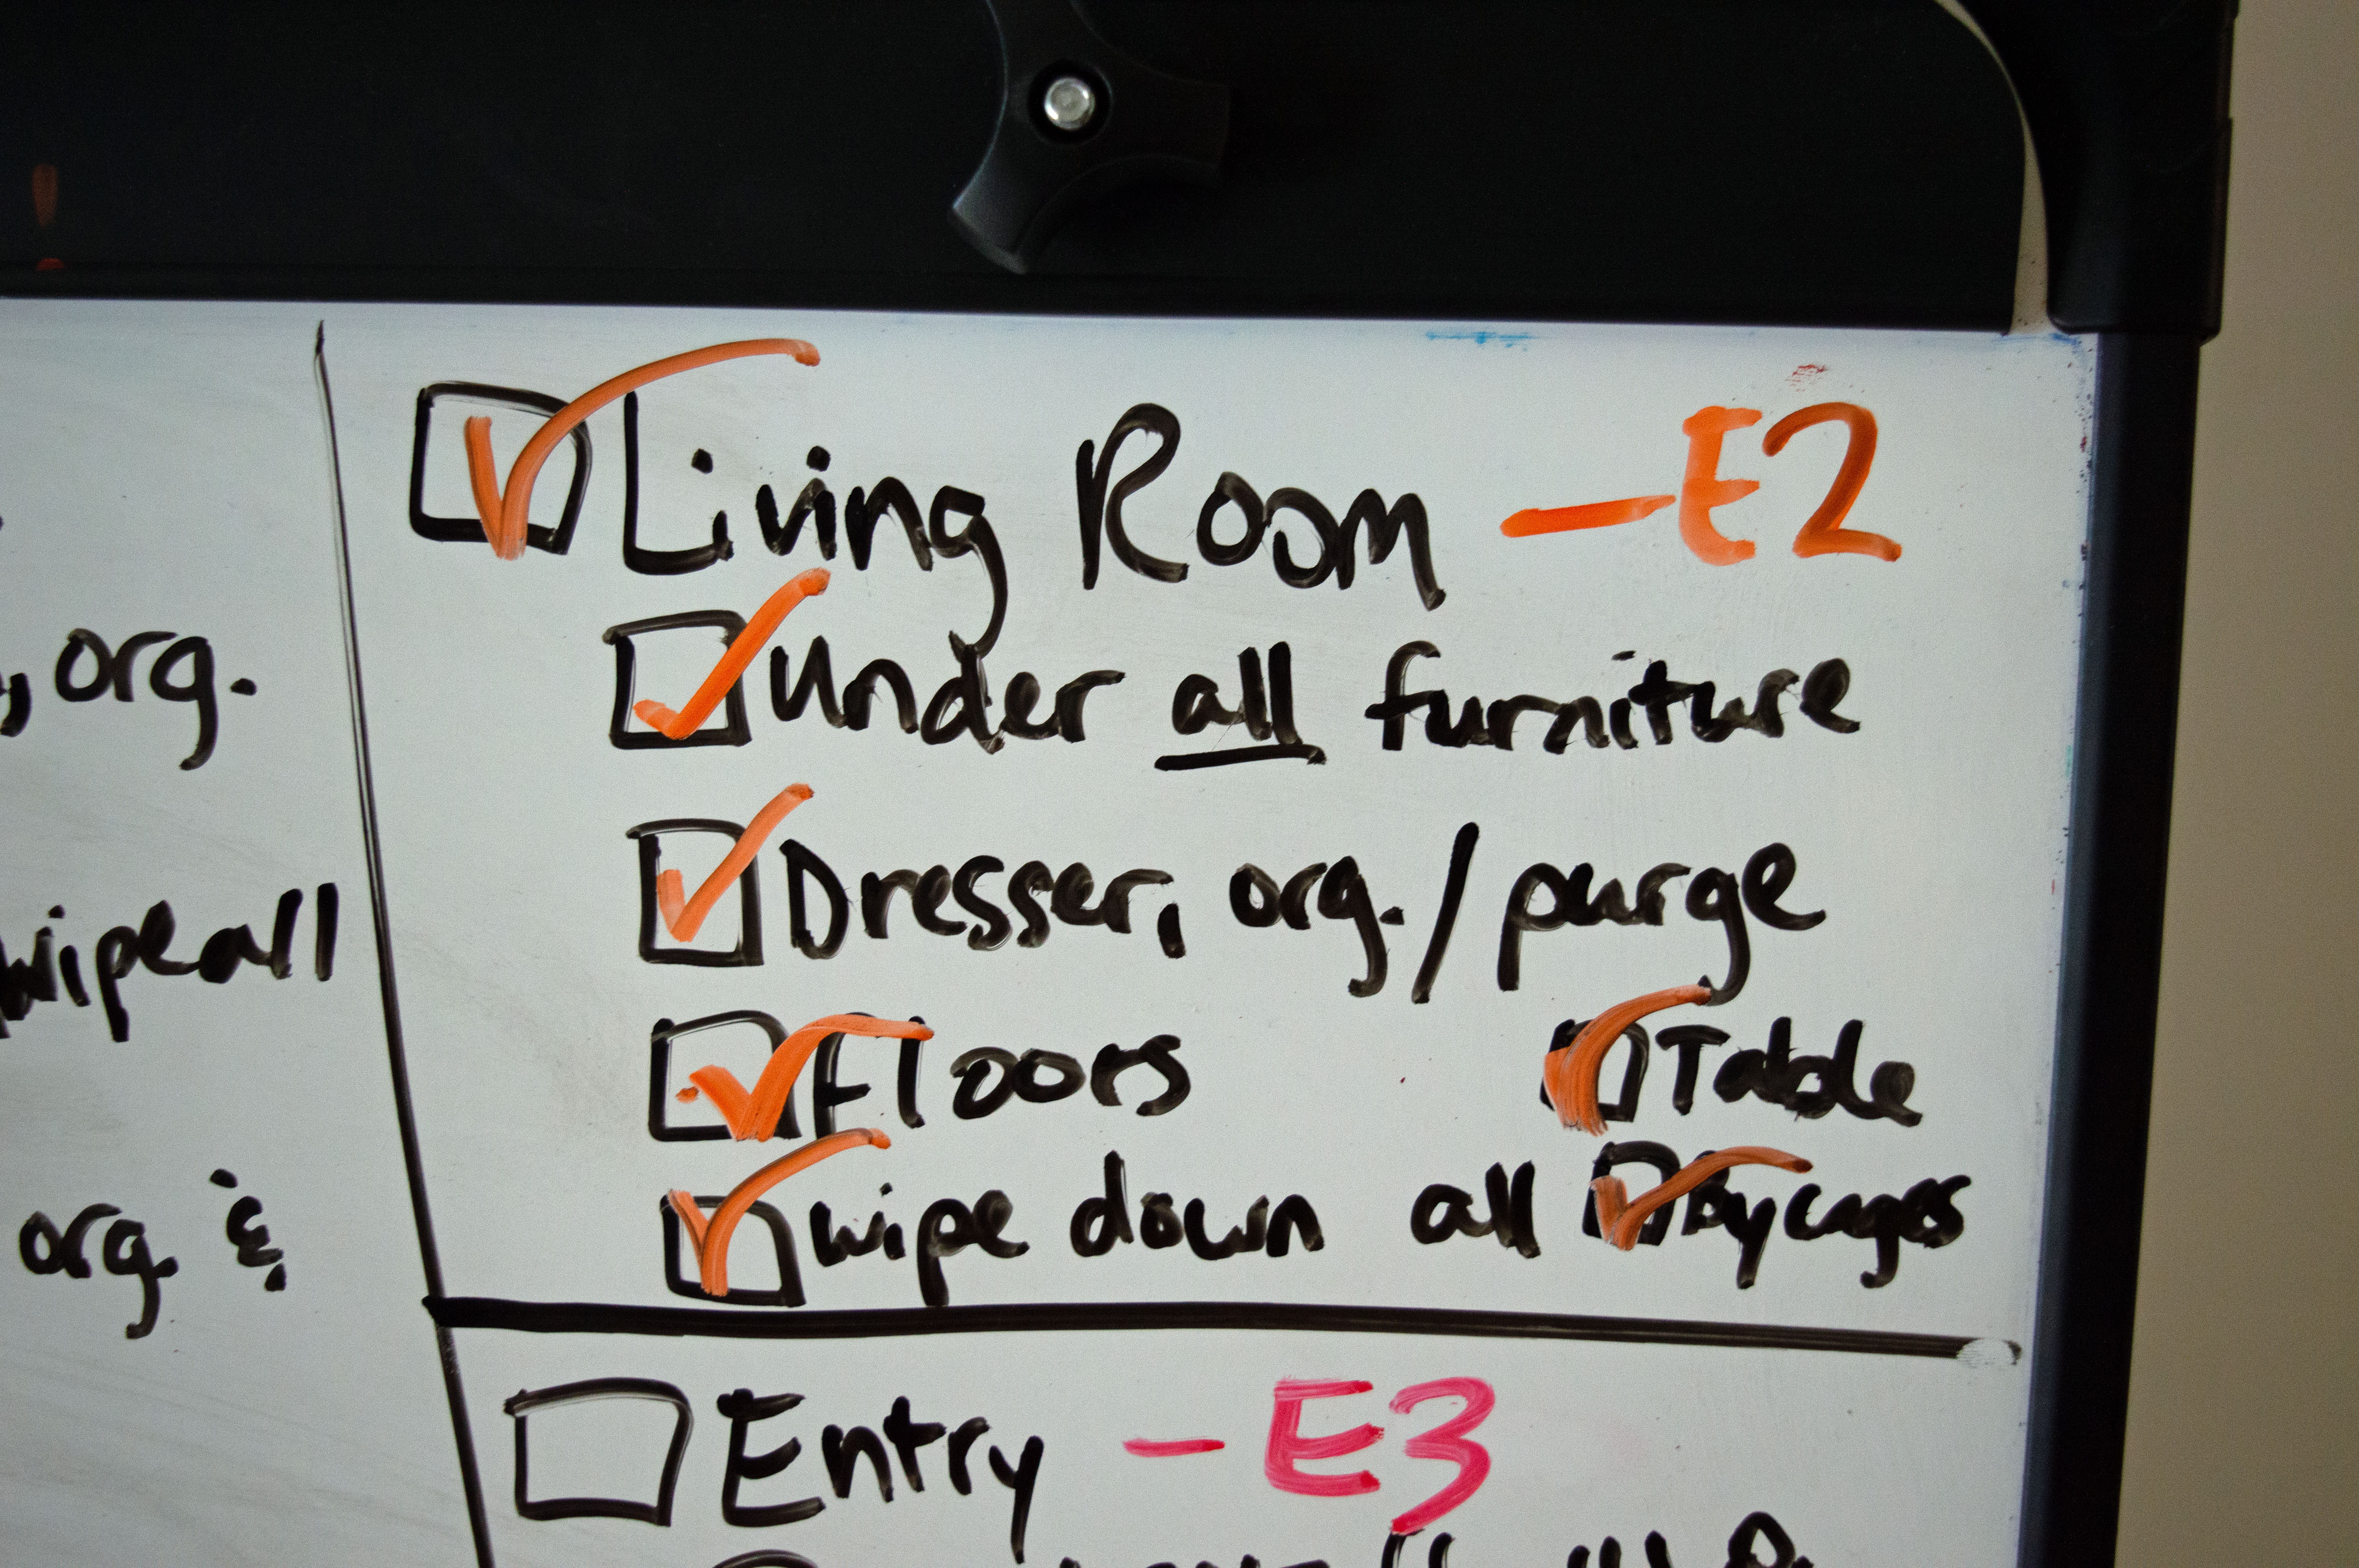 , org.
wipe all
org. &
Living Room — E2
Under all furniture
Dresser, org./purge
Floors
Table
wipe down all
By cages
Entry — E3